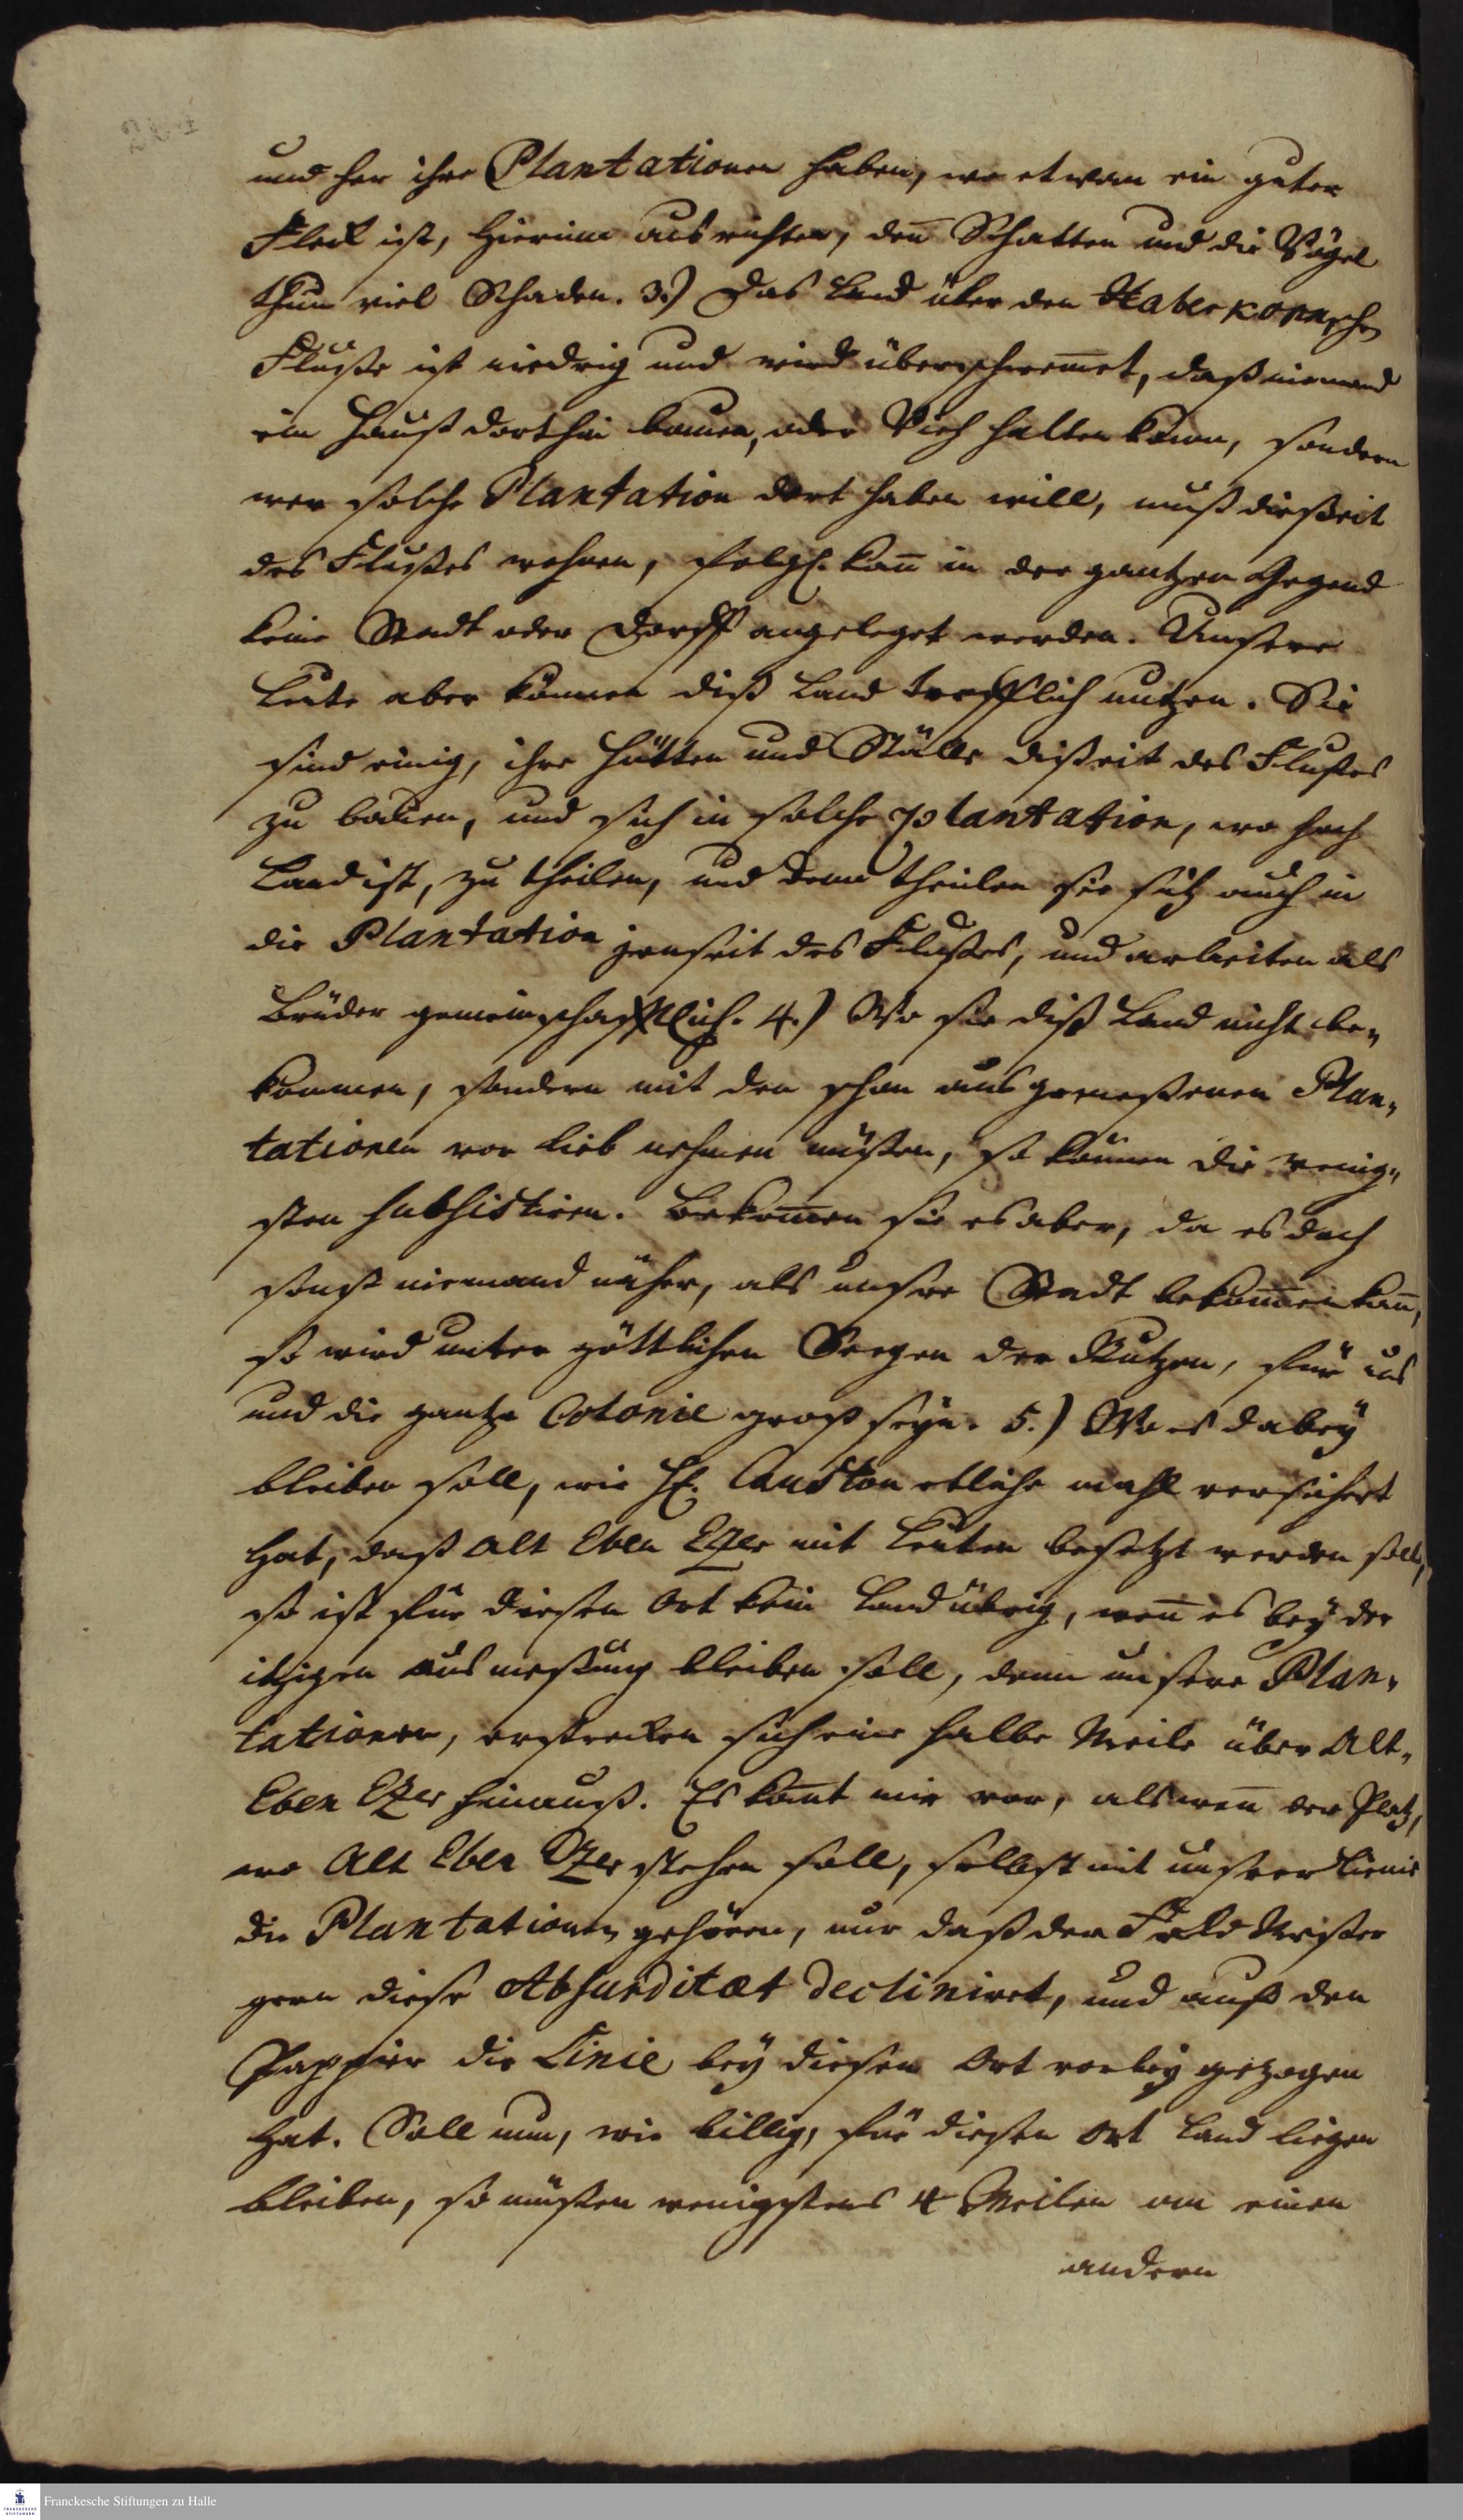 und her ihre Plantationen haben, wo etwan ein guter
Fleck ist, hierinn ausrichten, deñ Schatten und die Vögel
thun viel Schaden. 3.) Das Land über den Haberkornschen
Fluße ist niedrig und wird überschwem̄et, daß niemand
ein Hauß dorthin bauen, oder Vieh halten kann, sondern
wer solche Plantation dort haben will, muß dießeit
des Flußes wohnen, folgl. kañ in der gantzen Gegend
keine Stadt oder Dorff angeleget werden. Unsere
Leute aber können diß Land trefflich nutzen. Sie
sind einig, ihre Hütten und Ställe dißeit des Flußes
zu bauen, und sich in solche plantation, wo hoch
Land ist, zu theilen, und denn theilen sie sich auch in
die Plantation jenseit des Flußes, und arbeiten als
Brüder gemeinschafftlich. 4.) Wo sie diß Land nicht be-
kommen, sondern mit den schon ausgemeßenen Plan-
tationen vor lieb nehmen müßen, so können die wenig-
sten subsistiren. Bekom̄en sie es aber, da es doch
sonst niemand näher, als unsere Stadt bekom̄en kañ,
so wird unter göttlichen Seegen der Nutzen, für uns
und die gantze Colonie groß seyn. 5.) Wo es dabey
bleiben soll, wie H. Causton etliche mahl versichert
hat, daß Alt Eben Ezer mit Leuten besetzt werden soll,
so ist für diesen Ort kein Land übrig, weñ es bey der
itzigen Ausmeßung bleiben soll, denn unsere Plan-
tationen, erstrecken sich eine halbe Meile über Alt-
Eben Ezer hinauß. Es kom̄t mir vor, als weñ der Platz,
wo Alt Eben Ezer stehen soll, selbst mit unserer Linie
die Plantationen gehören, nur daß der Feld Meßer
gern diese Absurditæt decliniret, und auf den
Pappier die Linie bey diesen Ort vorbey gezogen
hat. Soll nun, wie billig, für diesen Ort Land liegen
bleiben, so müßen wenigstens 4 Meilen an einen
andern
Franckesche Stiftungen zu Halle